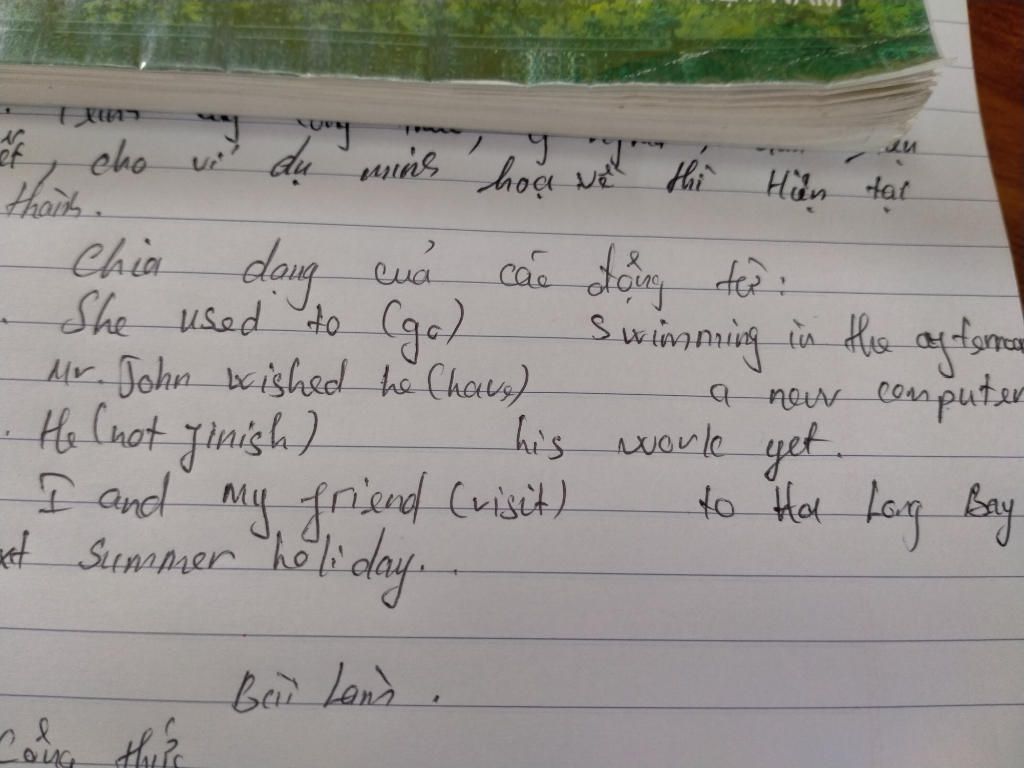 NAM
cho ví dụ minh hoạ về thì Hiện tại
thành.
Chia dạng của các động từ:
She used to (go) swimming in the
Mr. John wished he (have) a new computer
He (not finish) his work yet.
I and my friend (visit) to Ha Long Bay
summer holiday.
Bài Làm.
Công thức